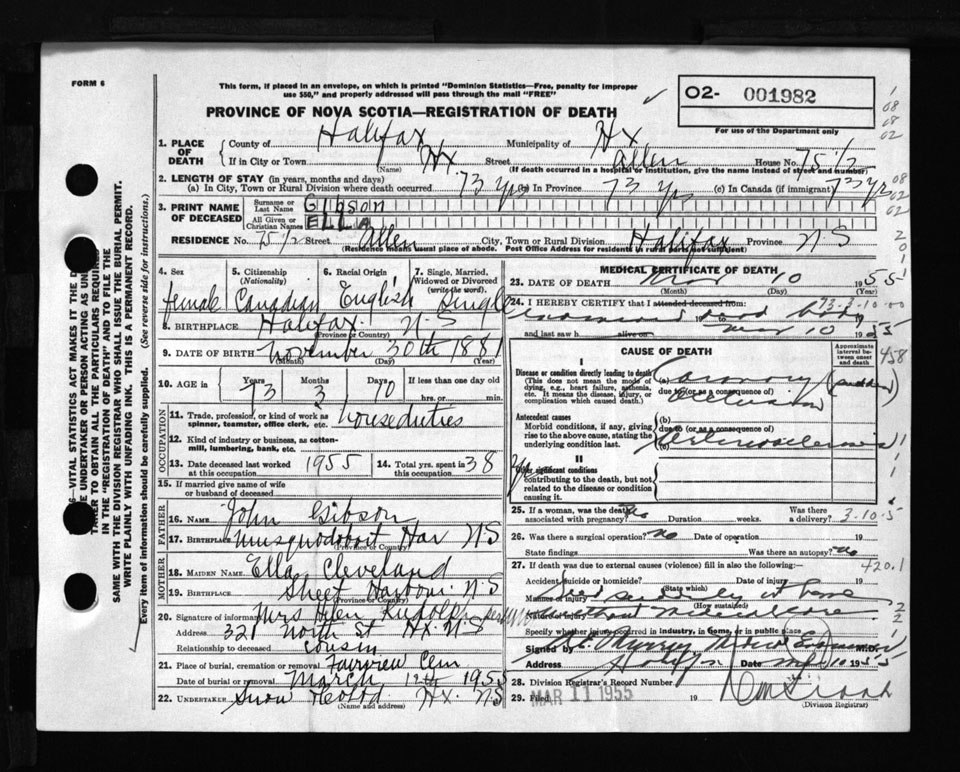 FORM 6
This form, if placed in an envelope, on which is printed "Dominion Statistics—Free, penalty for improper
use $50," and properly addressed will pass through the mail "FREE"
PROVINCE OF NOVA SCOTIA—REGISTRATION OF DEATH
O2- 001982
For use of the Department only
1. PLACE OF DEATH
County of Halifax Municipality of Hx
If in City or Town Hx Street Allen House No. 75 1/2
(Name) (If death occurred in a hospital or institution, give the name instead of street and number)
2. LENGTH OF STAY (in years, months and days)
(a) In City, Town or Rural Division where death occurred 73 yrs (b) In Province 73 yrs (c) In Canada (if immigrant) 73 yrs
3. PRINT NAME OF DECEASED
Surname or Last Name Gibson
All Given or Christian Names ELLA
RESIDENCE No. 75 1/2 Street Allen City, Town or Rural Division Halifax Province N S
(Residence means usual place of abode. Post Office Address for residents in rural parts not sufficient)
4. Sex female
5. Citizenship (Nationality) Canadian
6. Racial Origin English
7. Single, Married, Widowed or Divorced (write the word) Single
8. BIRTHPLACE Halifax N-S
(Province or Country)
9. DATE OF BIRTH November 30th 1881
(Month) (Day) (Year)
10. AGE in Years 73 Months 3 Days 10 If less than one day old hrs. or min.
OCCUPATION
11. Trade, profession, or kind of work as spinner, teamster, office clerk, etc. houseduties
12. Kind of industry or business, as cotton-mill, lumbering, bank, etc.
13. Date deceased last worked at this occupation 1955
14. Total yrs. spent in this occupation 38
15. If married give name of wife or husband of deceased
FATHER
16. NAME John Gibson
17. BIRTHPLACE Musquodoboit Har N S
(Province or Country)
MOTHER
18. MAIDEN NAME Ella Cleveland
19. BIRTHPLACE Sheet Harbour N-S
(Province or Country)
20. Signature of informant Mrs Helen Rudolph
Address 321 North St Hx. N S
Relationship to deceased cousin
21. Place of burial, cremation or removal Fairview Cem
Date of burial or removal March 12th 1955
22. UNDERTAKER Snow Hx. N S
(Name and address)
MEDICAL CERTIFICATE OF DEATH
23. DATE OF DEATH Mar 10 1955
(Month) (Day) (Year)
24. I HEREBY CERTIFY that I attended deceased from:
73-3-10-00
dead body
and last saw h alive on Mar 10 1955
CAUSE OF DEATH
Approximate interval between onset and death
458
I
Disease or condition directly leading to death
(This does not mean the mode of dying, e.g., heart failure, asthenia, etc. It means the disease, injury, or complication which caused death.)
(a) Coronary (sudden)
due to (or as a consequence of)
Occlusion
Antecedent causes
Morbid conditions, if any, giving rise to the above cause, stating the underlying condition last.
(b)
due to (or as a consequence of)
(c) Arteriosclerosis
II
Other significant conditions contributing to the death, but not related to the disease or condition causing it.
25. If a woman, was the death associated with pregnancy? No Duration weeks. Was there a delivery?
3-10-5
26. Was there a surgical operation? no Date of operation 19
State findings Was there an autopsy? no
27. If death was due to external causes (violence) fill in also the following:—
420.1
Accident, suicide or homicide? Date of injury 19
(State which)
Manner of injury died suddenly at home
(How sustained)
Nature of injury without medical care
Specify whether injury occurred in industry, in home, or in public place
Signed by Murray Medical Examiner M.D.
Address Halifax Date Mar 10 1955
28. Division Registrar's Record Number
29. Filed MAR 11 1955 19
(Division Registrar)
VITAL STATISTICS ACT MAKES IT THE D
E UNDERTAKER OR PERSON ACTING AS UN
TAKER TO OBTAIN ALL THE PARTICULARS REQUIRE
IN THE "REGISTRATION OF DEATH" AND TO FILE THE
SAME WITH THE DIVISION REGISTRAR WHO SHALL ISSUE THE BURIAL PERMIT.
WRITE PLAINLY WITH UNFADING INK. THIS IS A PERMANENT RECORD.
Every item of information should be carefully supplied. (See reverse side for instructions.)